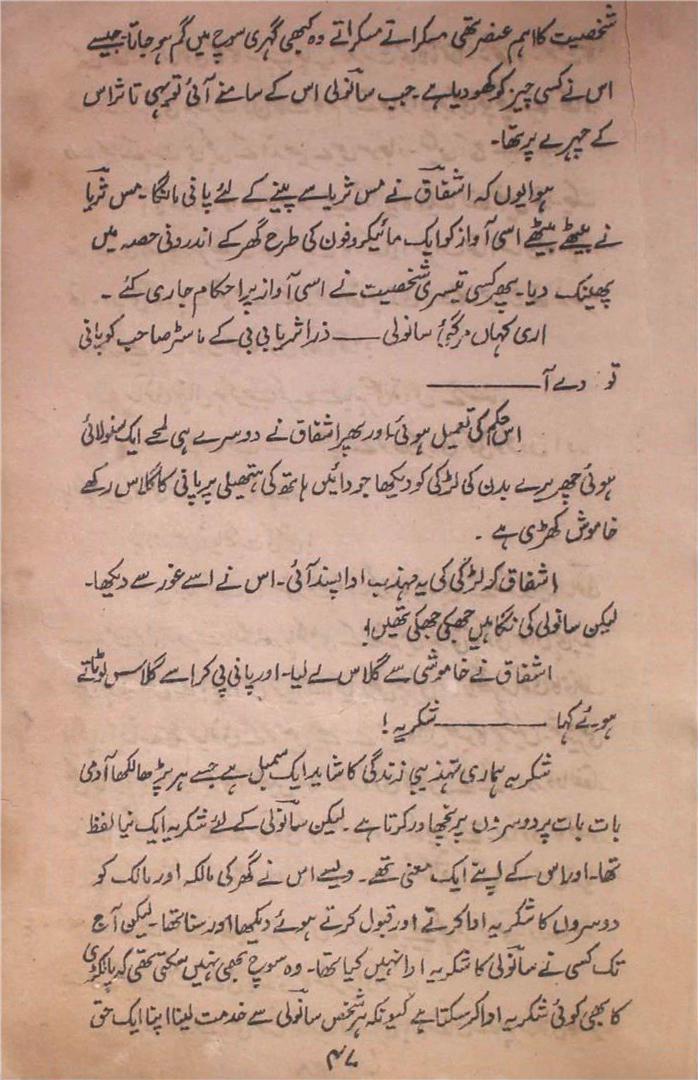 شخصیت کا اہم عنصر تھی مسکراتے مسکراتے وہ کبھی گہری سوچ میں گم ہو جاتا۔ جیسے
اس نے کسی چیز کو کھو دیا ہے۔ جب سانولی اس کے سامنے آئی تو یہی تاثر اس
کے چہرے پر تھا۔
ہوا یوں کہ اشفاق نے مس ثریا سے پینے کے لئے پانی مانگا۔ مس ثریا
نے بیٹھے بیٹھے اسی آواز کو ایک مائیکروفون کی طرح گھر کے اندرونی حصہ میں
پھینک دیا۔ پھر کسی تیسری شخصیت نے اسی آواز پر احکام جاری کئے۔
اری کہاں مر گئی سانولی —— ذرا ثریا بی بی کے ماسٹر صاحب کو پانی
تو دے آ ————
اس حکم کی تعمیل ہوئی، اور پھر اشفاق نے دوسرے ہی لمحے ایک سنولائی
ہوئی چھریرے بدن کی لڑکی کو دیکھا جو دائیں ہاتھ کی ہتھیلی پر پانی کا گلاس رکھے
خاموش کھڑی ہے ۔
اشفاق کو لڑکی کی یہ مہذب ادا پسند آئی۔ اس نے اسے غور سے دیکھا۔
لیکن سانولی کی نگاہیں جھکی جھکی تھیں!
اشفاق نے خاموشی سے گلاس لے لیا۔ اور پانی پی کر اسے گلاس لوٹاتے
ہوئے کہا ———— شکریہ!
شکریہ ہماری تہذیبی زندگی کا شاید ایک سمبل ہے جسے ہر پڑھا لکھا آدمی
بات بات پر دوسروں پر نچھاور کرتا ہے۔ لیکن سانولی کے لئے شکریہ ایک نیا لفظ
تھا۔ اور اس کے اپنے ایک معنی تھے۔ ویسے اس نے گھر کی مالکہ اور مالک کو
دوسروں کا شکریہ ادا کرتے اور قبول کرتے ہوئے دیکھا اور سنا تھا۔ لیکن آج
تک کسی نے سانولی کا شکریہ ادا نہیں کیا تھا۔ وہ سوچ بھی نہیں سکتی تھی کہ
کا بھی کوئی شکریہ ادا کر سکتا ہے کیونکہ ہر شخص سانولی سے خدمت لینا اپنا ایک حق
۴۷